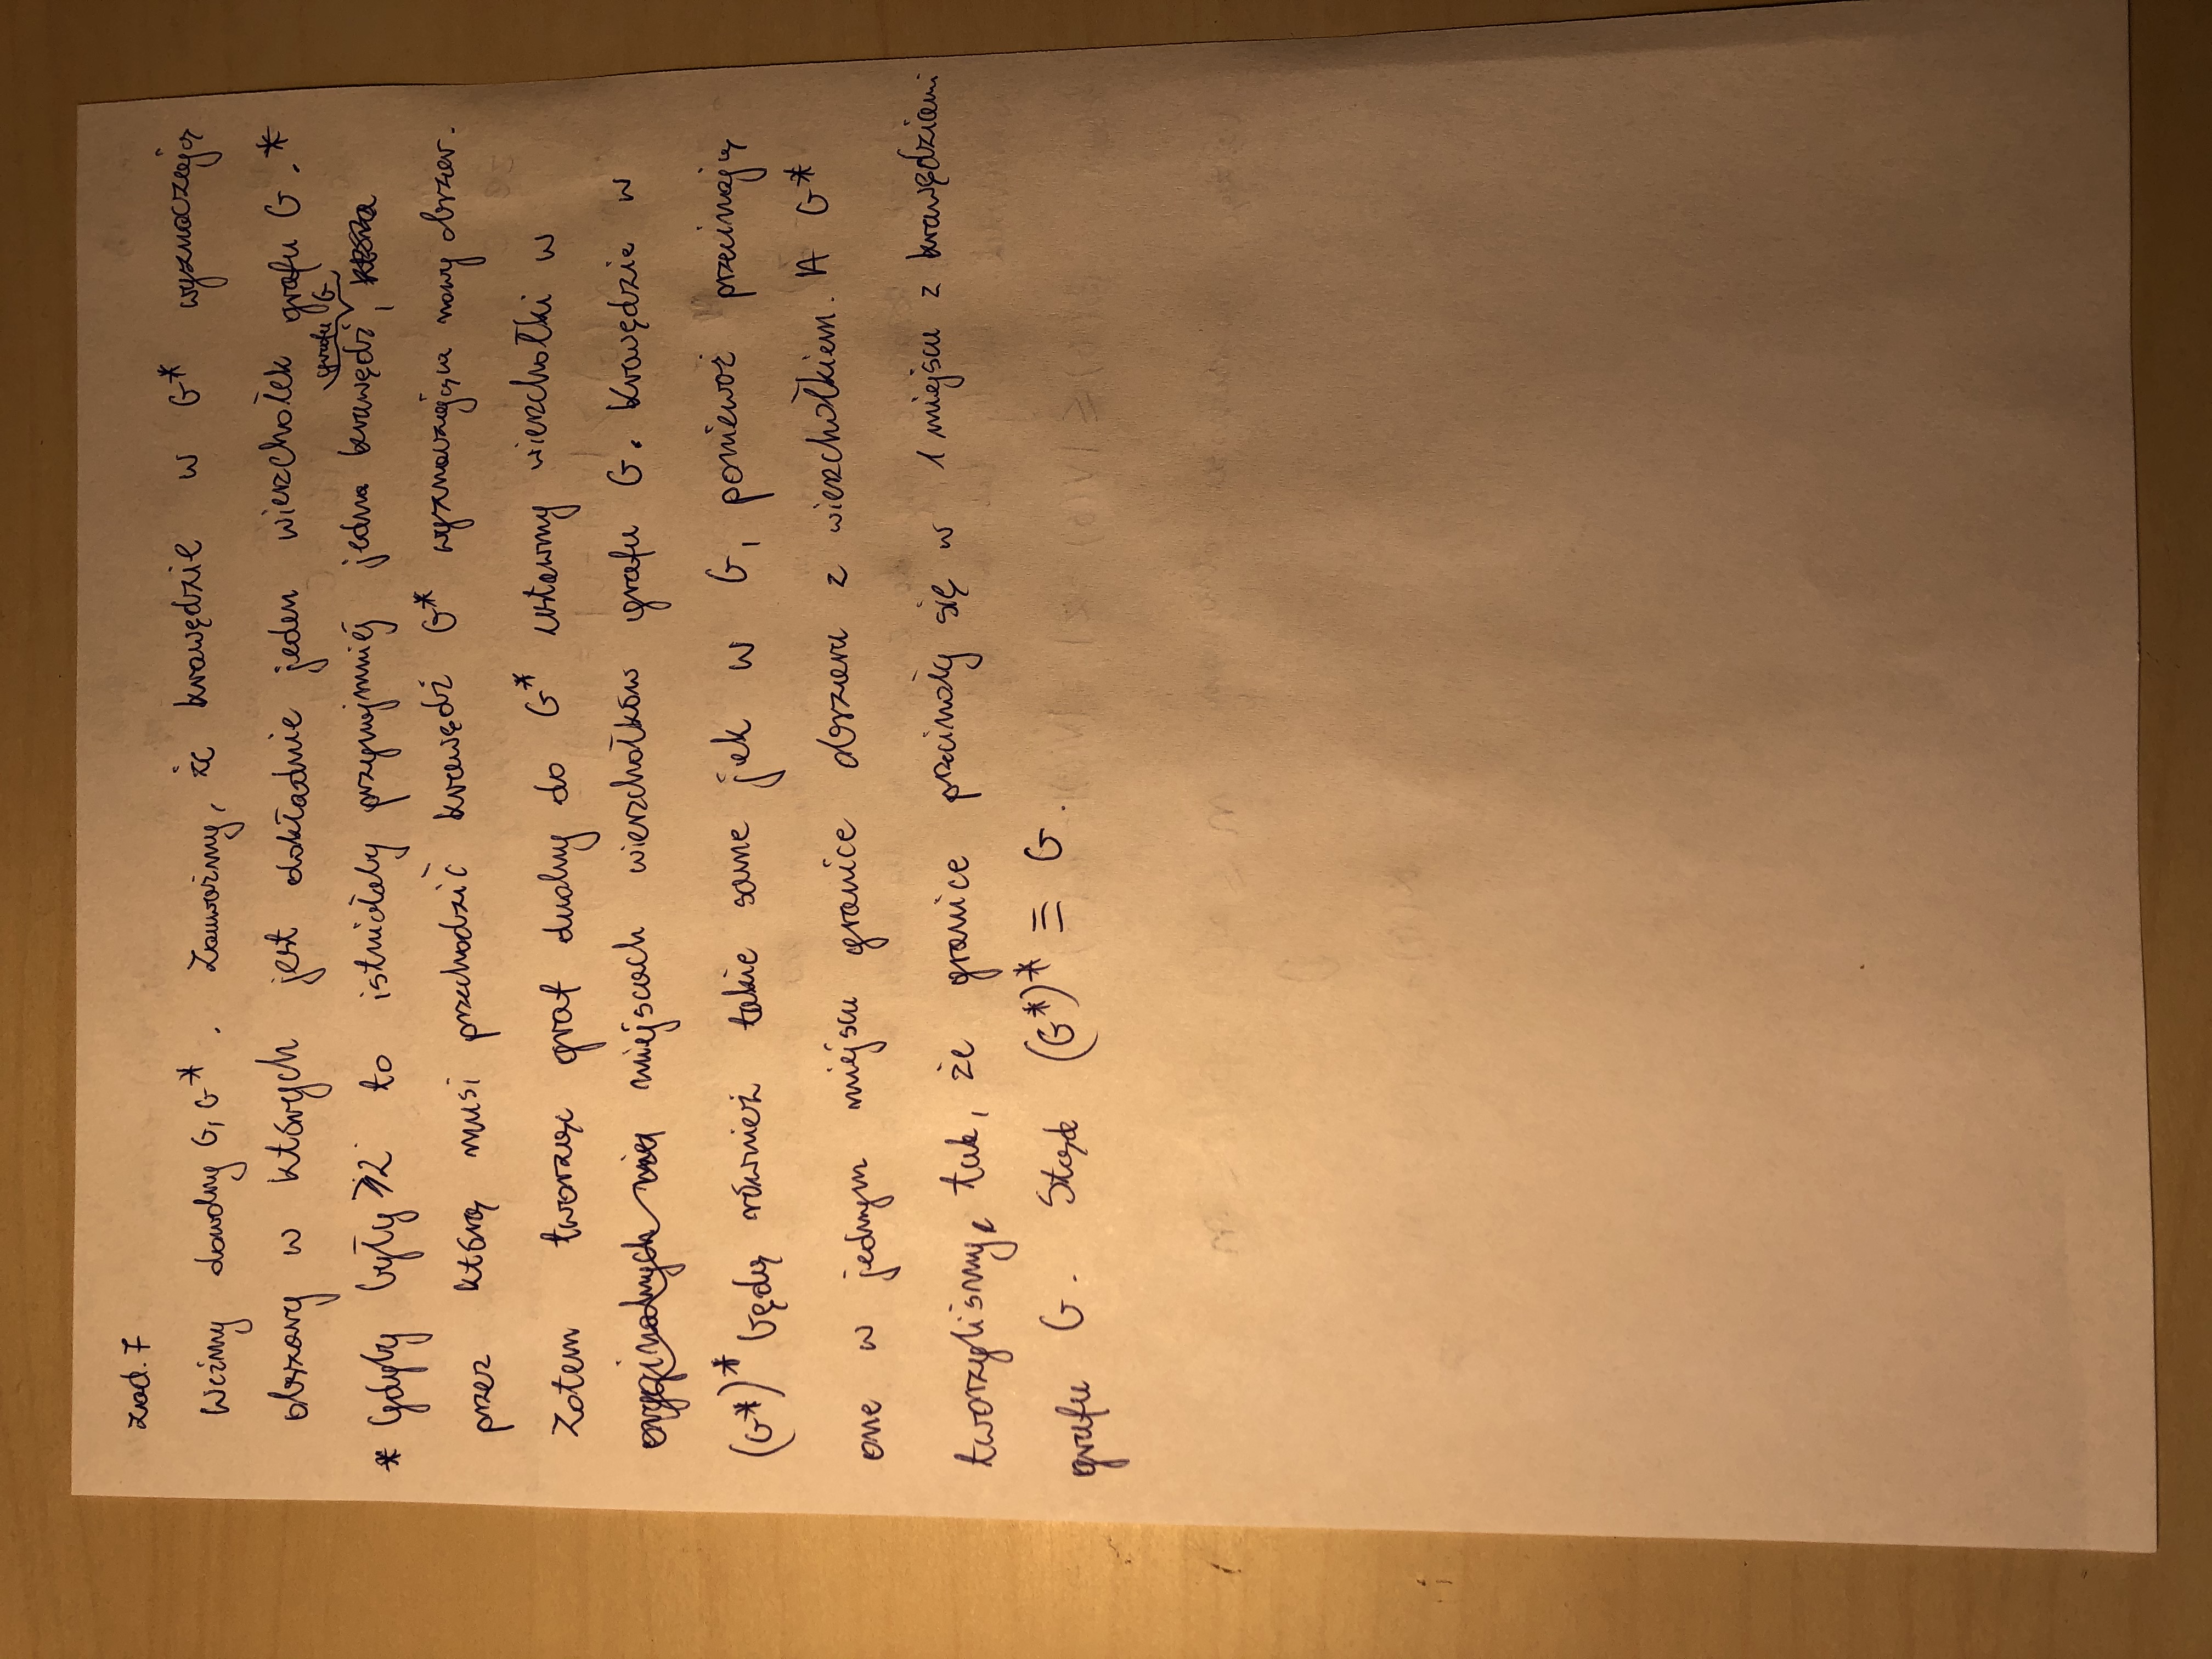 zad. 7
Weźmy dowolny G, G* . Zauważmy, że krawędzie w G* wyznaczają
obszary w których jest dokładnie jeden wierzchołek grafu G . *
grafu G
* Gdyby były ≥2 to istniałaby przynajmniej jedna krawędź ,
przez którą musi przechodzić krawędź G* wyznaczająca nowy obszar.
Zatem tworząc graf dualny do G* wstawmy wierzchołki w
miejscach wierzchołków grafu G. Krawędzie w
(G*)* będą również takie same jak w G, ponieważ przecinają
one w jednym miejscu granice obszaru z wierzchołkiem. A G*
tworzyliśmy, tak, że granice przecinały się w 1 miejscu z krawędziami
grafu G. Stąd (G*)* ≡ G.